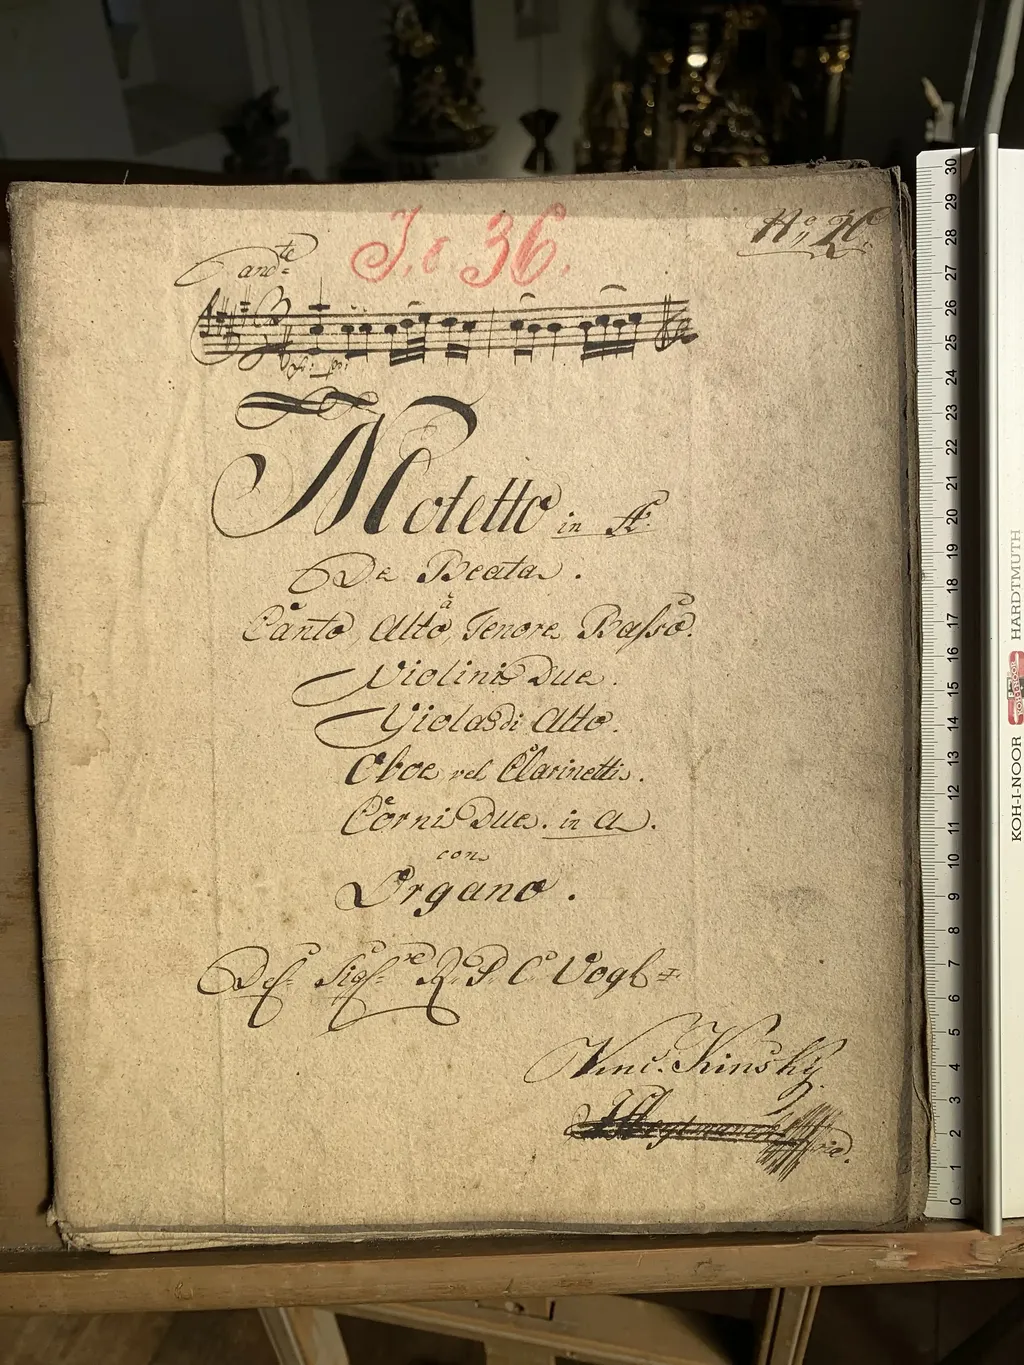 J. c. 36.
No. 26.
andte
fr: po:
Motetto in A.
De Beata.
à
Canto, Alto, Tenore, Basso.
Violinis Due.
Violas di Alto.
Oboe vel Clarinettis.
Cornis Due. in A.
con
Organo.
Del Sigre R. P. C Vogl
Vinc. Kinsky
30
29
28
27
26
25
24
23
22
21
20
19
18
17
16
15
14
13
12
11
10
9
8
7
6
5
4
3
2
1
0
KOH-I-NOOR HARDTMUTH